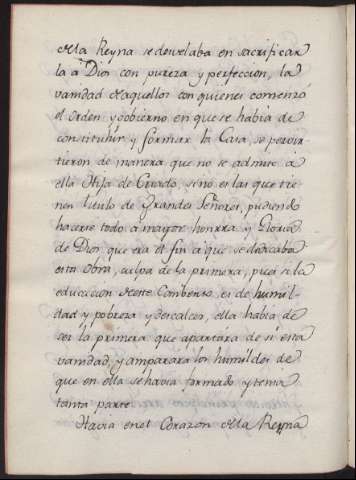 de la Reyna se desvelaba en sacrificar
la à Dios con pureza y perfeccion, la
vanidad de aquellos con quienes comenzó
el orden y gobierno en que se habia de
constituhir y formar la Casa, se pervir
tieron de manera que no se admite à
ella Hija de Criado, sino es las que tie
nen titulo de Grandes Señores, pudiendo
hacerse todo a mayor honrra y Gloria
de Dios, que era el fin a que se dedicaba
esta obra, culpa de la primera, pues si la
educacion de este Combento, es de humil-
dad y pobreza y descalces, ella habia de
ser la primera que apartara de si esta
vanidad, y amparara los humildes de
que en ella se havia formado y tenia
tanta parte
Havia en el Corazon de la Reyna